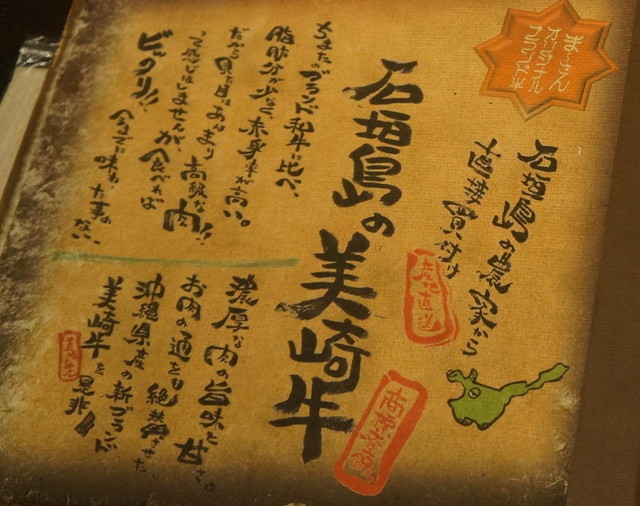 まーさん
オリジナル
ブランド牛
石垣島の農家から
直接買い付け
産地直送
石垣島の美崎牛
商標登録
ちまたのブランド和牛に比べ、
脂肪分が少なく、赤身率が高い。
だから見た目はあんまり高級な肉!!
って感じはしませんが、食べれば
ビックリ!!今までに味わった事のない、
濃厚な肉の旨味と甘さ。
お肉の通をも絶賛させた
沖縄県産の新ブランド
美崎牛を是非!!